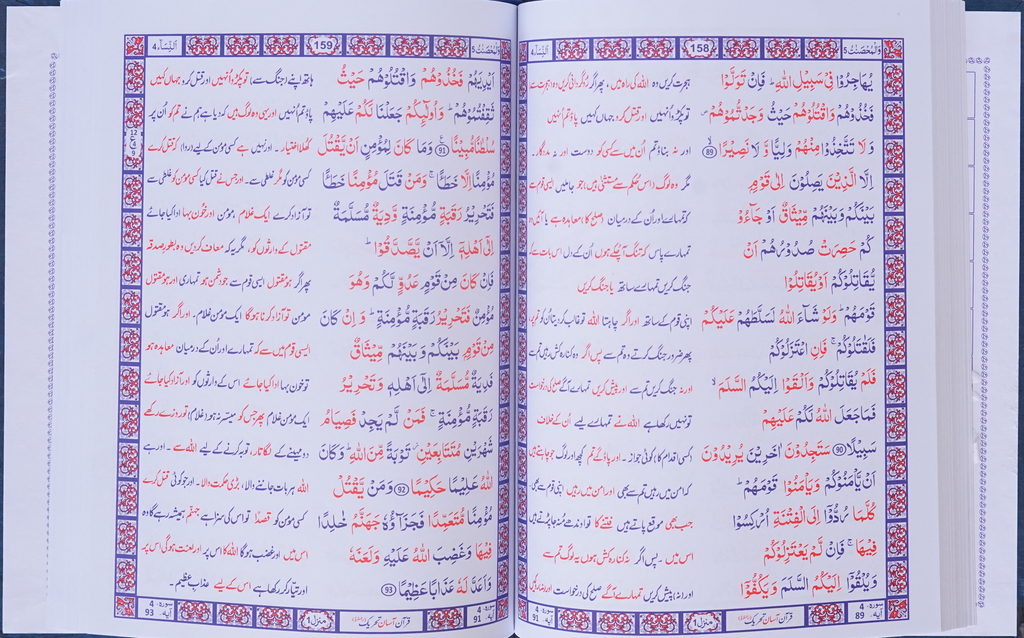 وَالْمُحْصَنٰتُ 5 158 اَلنِّسَآء 4
يُهَاجِرُوْا فِيْ سَبِيْلِ اللّٰهِ ؕ فَاِنْ تَوَلَّوْا ہجرت کریں وہ اللہ کی راہ میں، پھر اگر روگردانی کریں وہ ہجرت سے
فَخُذُوْهُمْ وَاقْتُلُوْهُمْ حَيْثُ وَجَدْتُّمُوْهُمْ ۪ تو پکڑو انہیں اور قتل کرو جہاں کہیں پاؤ تم انہیں
وَ لَا تَتَّخِذُوْا مِنْهُمْ وَلِيًّا وَّ لَا نَصِيْرًا ﴿89﴾ اور نہ بناؤ تم اُن میں سے کسی کو دوست اور نہ مددگار۔
اِلَّا الَّذِيْنَ يَصِلُوْنَ اِلٰى قَوْمٍۭ مگر وہ لوگ (اس حکم سے مستثنیٰ ہیں) جو جا ملیں ایسی قوم سے
بَيْنَكُمْ وَبَيْنَهُمْ مِّيْثَاقٌ اَوْ جَآءُوْ کہ تمہارے اور اُن کے درمیان (صلح کا) معاہدہ ہے یا آئیں وہ
كُمْ حَصِرَتْ صُدُوْرُهُمْ اَنْ تمہارے پاس کہ تنگ آ چکے ہوں اُن کے دل اس بات سے کہ
يُّقَاتِلُوْكُمْ اَوْ يُقَاتِلُوْا جنگ کریں تمہارے ساتھ یا جنگ کریں
قَوْمَهُمْ ؕ وَلَوْ شَآءَ اللّٰهُ لَسَلَّطَهُمْ عَلَيْكُمْ اپنی قوم کے ساتھ اور اگر چاہتا اللہ تو غالب کر دیتا اُن کو تم پر
فَلَقٰتَلُوْكُمْ ۚ فَاِنِ اعْتَزَلُوْكُمْ پھر ضرور جنگ کرتے وہ تم سے پس اگر وہ کنارہ کش رہیں تم سے
فَلَمْ يُقَاتِلُوْكُمْ وَاَلْقَوْا اِلَيْكُمُ السَّلَمَ ۙ اور نہ جنگ کریں تم سے اور پیش کریں تمہارے آگے صلح کی درخواست
فَمَا جَعَلَ اللّٰهُ لَكُمْ عَلَيْهِمْ تو نہیں رکھا ہے اللہ نے تمہارے لیے اُن کے خلاف
سَبِيْلًا ﴿90﴾ سَتَجِدُوْنَ اٰخَرِيْنَ يُرِيْدُوْنَ (کسی اقدام کا) کوئی جواز۔ اور پاؤ گے تم کچھ اور لوگ جو چاہتے ہیں
اَنْ يَّاْمَنُوْكُمْ وَيَاْمَنُوْا قَوْمَهُمْ ؕ کہ امن میں رہیں تم سے بھی اور امن میں رہیں اپنی قوم سے بھی
كُلَّمَا رُدُّوْٓا اِلَى الْفِتْنَةِ اُرْكِسُوْا جب بھی موقع پاتے ہیں فتنے کا تو اوندھے منہ جا پڑتے ہیں
فِيْهَا ۚ فَاِنْ لَّمْ يَعْتَزِلُوْكُمْ اس میں۔ پس اگر نہ کنارہ کش ہوں یہ لوگ تم سے
وَيُلْقُوْٓا اِلَيْكُمُ السَّلَمَ وَيَكُفُّوْٓا اور (نہ) پیش کریں تمہارے آگے صلح کی درخواست اور (نہ) روکیں
سورۃ 4 آیۃ 89 منزل 1 قرآن آسان تحریک سورۃ 4 آیۃ 91
وَالْمُحْصَنٰتُ 5 159 اَلنِّسَآء 4
اَيْدِيَهُمْ فَخُذُوْهُمْ وَاقْتُلُوْهُمْ حَيْثُ ہاتھ اپنے (جنگ سے) تو پکڑو اُنہیں اور قتل کرو جہاں کہیں
ثَقِفْتُمُوْهُمْ ؕ وَاُولٰٓئِكُمْ جَعَلْنَا لَكُمْ عَلَيْهِمْ پاؤ تم اُنہیں اور یہی وہ لوگ ہیں کہ دیا ہے ہم نے تم کو اُن پر
سُلْطٰنًا مُّبِيْنًا ﴿91﴾ وَمَا كَانَ لِمُؤْمِنٍ اَنْ يَّقْتُلَ کھلا اختیار۔ اور نہیں ہے کسی مؤمن کے لیے (روا) کہ قتل کرے
مُؤْمِنًا اِلَّا خَطَـًٔا ۚ وَمَنْ قَتَلَ مُؤْمِنًا خَطَـًٔا کسی مؤمن کو مگر غلطی سے۔ اور جس نے قتل کیا کسی مؤمن کو غلطی سے
فَتَحْرِيْرُ رَقَبَةٍ مُّؤْمِنَةٍ وَّدِيَةٌ مُّسَلَّمَةٌ تو آزاد کرے ایک غلام مؤمن اور خُون بہا ادا کیا جائے
اِلٰٓى اَهْلِهٖٓ اِلَّآ اَنْ يَّصَّدَّقُوْا ؕ مقتول کے وارثوں کو، مگر یہ کہ معاف کر دیں وہ بطور صدقہ
فَاِنْ كَانَ مِنْ قَوْمٍ عَدُوٍّ لَّكُمْ وَهُوَ پھر اگر ہو مقتول ایسی قوم سے جو دشمن ہو تمہاری اور ہو مقتول
مُؤْمِنٌ فَتَحْرِيْرُ رَقَبَةٍ مُّؤْمِنَةٍ ؕ وَاِنْ كَانَ مومن تو آزاد کرنا ہوگا ایک مؤمن غلام۔ اور اگر ہو مقتول
مِنْ قَوْمٍۭ بَيْنَكُمْ وَبَيْنَهُمْ مِّيْثَاقٌ ایسی قوم میں سے کہ تمہارے اور اُن کے درمیان معاہدہ ہو
فَدِيَةٌ مُّسَلَّمَةٌ اِلٰٓى اَهْلِهٖ وَتَحْرِيْرُ تو خون بہا ادا کیا جائے اس کے وارثوں کو اور آزاد کیا جائے
رَقَبَةٍ مُّؤْمِنَةٍ ۚ فَمَنْ لَّمْ يَجِدْ فَصِيَامُ ایک مؤمن غلام پھر جس کو میسر نہ ہو (غلام) تو روزے رکھے
شَهْرَيْنِ مُتَتَابِعَيْنِ ؗ تَوْبَةً مِّنَ اللّٰهِ ؕ وَكَانَ دو مہینے کے لگاتار، توبہ کرنے کے لیے اللہ سے۔ اور ہے
اللّٰهُ عَلِيْمًا حَكِيْمًا ﴿92﴾ وَمَنْ يَّقْتُلْ اللہ ہر بات جاننے والا، بڑی حکمت والا۔ اور جو کوئی قتل کرے
مُؤْمِنًا مُّتَعَمِّدًا فَجَزَآؤُهٗ جَهَنَّمُ خٰلِدًا کسی مؤمن کو قصداً تو اس کی سزا ہے جہنم ہمیشہ رہے گا وہ
فِيْهَا وَغَضِبَ اللّٰهُ عَلَيْهِ وَلَعَنَهٗ اس میں اور غضب ہوگا اللہ کا اس پر اور لعنت ہوگی اس پر
وَاَعَدَّ لَهٗ عَذَابًا عَظِيْمًا ﴿93﴾ اور تیار کر رکھا ہے اس کے لیے عذاب عظیم۔
سورۃ 4 آیۃ 91 قرآن آسان تحریک منزل 1 سورۃ 4 آیۃ 93